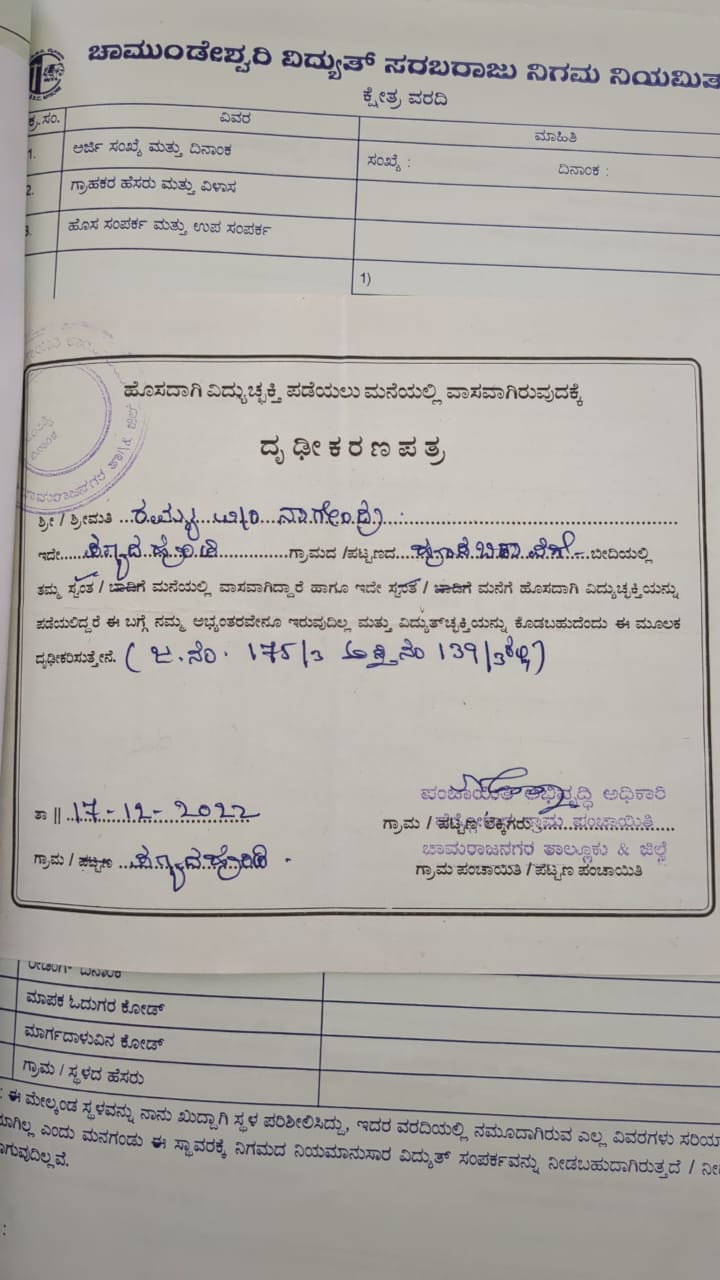 ಚಾಮುಂಡೇಶ್ವರಿ ವಿದ್ಯುತ್ ಸರಬರಾಜು ನಿಗಮ ನಿಯಮಿತ
ಕ್ಷೇತ್ರ ವರದಿ
ಕ್ರ.ಸಂ. ವಿವರ ಮಾಹಿತಿ
1. ಅರ್ಜಿ ಸಂಖ್ಯೆ ಮತ್ತು ದಿನಾಂಕ ಸಂಖ್ಯೆ : ದಿನಾಂಕ :
2. ಗ್ರಾಹಕರ ಹೆಸರು ಮತ್ತು ವಿಳಾಸ
3. ಹೊಸ ಸಂಪರ್ಕ ಮತ್ತು ಉಪ ಸಂಪರ್ಕ
1)
ಹೊಸದಾಗಿ ವಿದ್ಯುಚ್ಛಕ್ತಿ ಪಡೆಯಲು ಮನೆಯಲ್ಲಿ ವಾಸವಾಗಿರುವುದಕ್ಕೆ
ದೃಢೀಕರಣಪತ್ರ
ಶ್ರೀ / ಶ್ರೀಮತಿ ರಮ್ಯ ನಾಗೇಂದ್ರ
ಇದೇ ಗ್ರಾಮದ /ಪಟ್ಟಣದ ಬೀದಿಯಲ್ಲಿ
ತಮ್ಮ ಸ್ವಂತ / ಬಾಡಿಗೆ ಮನೆಯಲ್ಲಿ ವಾಸವಾಗಿದ್ದಾರೆ ಹಾಗೂ ಇದೇ ಸ್ವಂತ / ಬಾಡಿಗೆ ಮನೆಗೆ ಹೊಸದಾಗಿ ವಿದ್ಯುಚ್ಛಕ್ತಿಯನ್ನು
ಪಡೆಯಲಿದ್ದರೆ ಈ ಬಗ್ಗೆ ನಮ್ಮ ಅಭ್ಯಂತರವೇನೂ ಇರುವುದಿಲ್ಲ ಮತ್ತು ವಿದ್ಯುತ್‌ಚ್ಛಕ್ತಿಯನ್ನು ಕೊಡಬಹುದೆಂದು ಈ ಮೂಲಕ
ದೃಢೀಕರಿಸುತ್ತೇನೆ. ( ಜ.ನೆಂ. 175/3 139/3
ಪಂಚಾಯಿತಿ ಅಭಿವೃದ್ಧಿ ಅಧಿಕಾರಿ
ತಾ || 17-12-2022 ಗ್ರಾಮ / ಪಟ್ಟಣ ಲೆಕ್ಕಿಗರು ಗ್ರಾಮ ಪಂಚಾಯಿತಿ
ಚಾಮರಾಜನಗರ ತಾಲ್ಲೂಕು & ಜಿಲ್ಲೆ
ಗ್ರಾಮ / ಪಟ್ಟಣ ಗ್ರಾಮ ಪಂಚಾಯಿತಿ / ಪಟ್ಟಣ ಪಂಚಾಯಿತಿ
ಮಾಪಕ ಓದುಗರ ಕೋಡ್
ಮಾರ್ಗದಾಳುವಿನ ಕೋಡ್
ಗ್ರಾಮ / ಸ್ಥಳದ ಹೆಸರು
: ಈ ಮೇಲ್ಕಂಡ ಸ್ಥಳವನ್ನು ನಾನು ಖುದ್ದಾಗಿ ಸ್ಥಳ ಪರಿಶೀಲಿಸಿದ್ದು, ಇದರ ವರದಿಯಲ್ಲಿ ನಮೂದಾಗಿರುವ ಎಲ್ಲ ವಿವರಗಳು
ಎಂದು ಮನಗಂಡು ಈ ಸ್ಥಾವರಕ್ಕೆ ನಿಗಮದ ನಿಯಮಾನುಸಾರ ವಿದ್ಯುತ್ ಸಂಪರ್ಕವನ್ನು ನೀಡಬಹುದಾಗಿರುತ್ತದೆ /